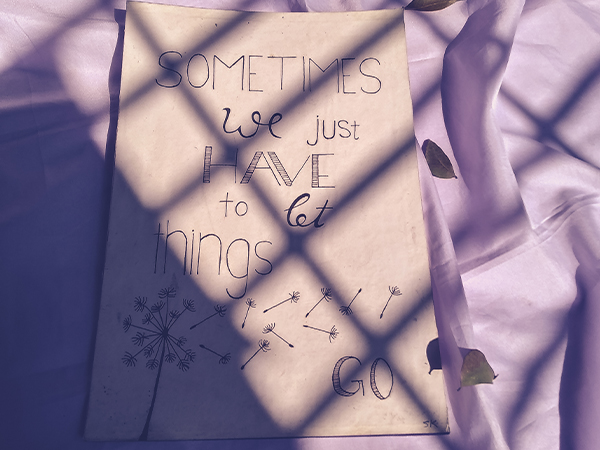 SOMETIMES
we just
HAVE
to let
things
GO
SK